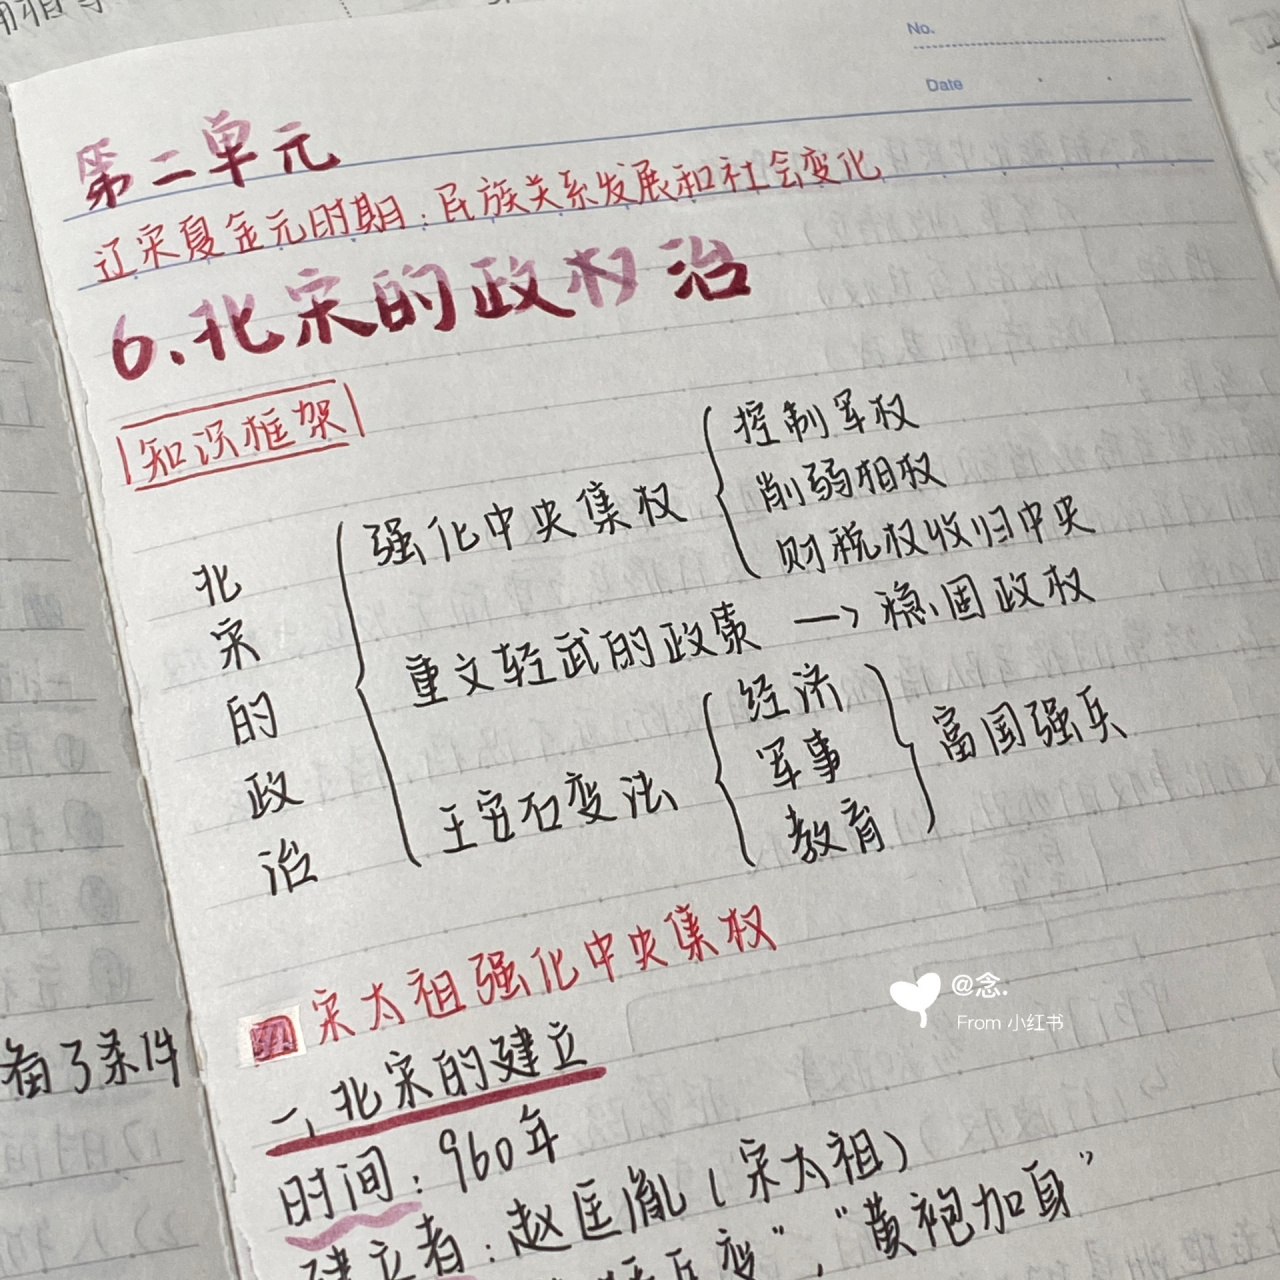 No.
Date
第二单元
辽宋夏金元时期:民族关系发展和社会变化
6.北宋的政权治
知识框架
北宋的政治
强化中央集权
控制军权
削弱相权
财税权收归中央
重文轻武的政策 → 稳固政权
王安石变法
经济
军事
教育
富国强兵
宋太祖强化中央集权
一、北宋的建立
时间:960年
建立者:赵匡胤(宋太祖)
兵变","黄袍加身"
备了条件
@念.
From 小红书